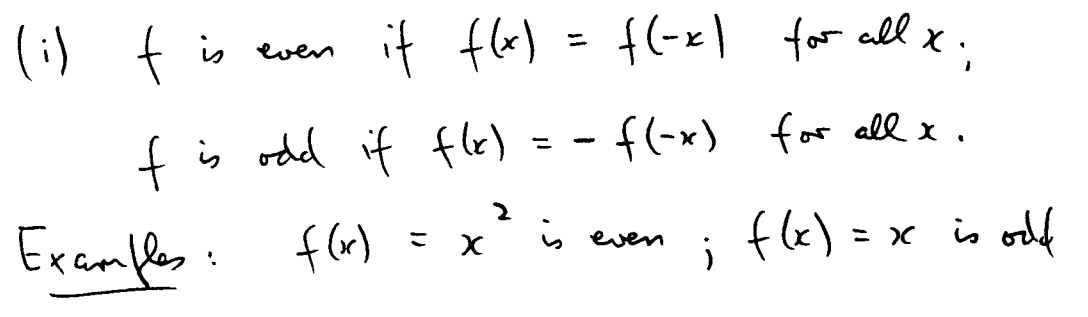 (i) f is even if f(x) = f(-x) for all x ;
f is odd if f(x) = - f(-x) for all x .
Examples : f(x) = x² is even ; f(x) = x is odd